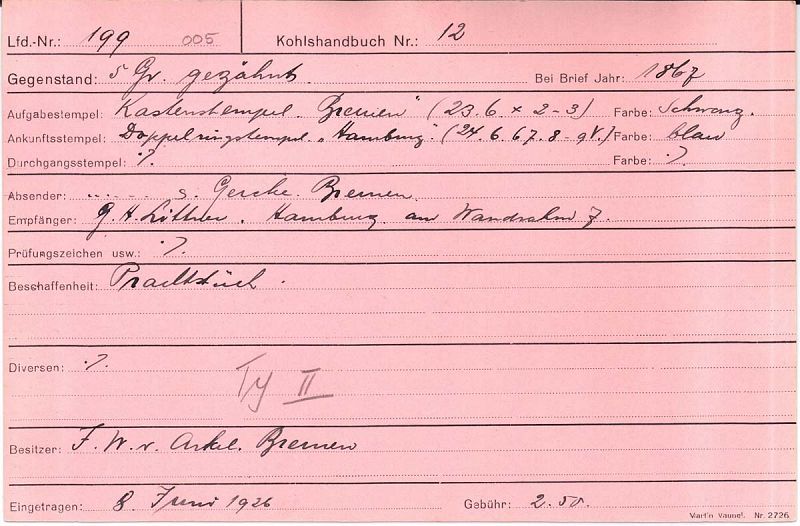 Lfd.-Nr.: 199 005 Kohlshandbuch Nr.: 12
Gegenstand: 5 Gr. gezähnt. Bei Brief Jahr: 1867
Aufgabestempel: Kastenstempel „Bremen" (23.6 x 2-3) Farbe: Schwarz.
Ankunftsstempel: Doppelringstempel „Hamburg". (24.6.67. 8-9V.) Farbe: blau
Durchgangsstempel: ./. Farbe: ./.
Absender: S. Gercke. Bremen.
Empfänger: G. H. Hamburg. am Wandrahm 7.
Prüfungszeichen usw.: ./.
Beschaffenheit: Prachtstück.
Diversen: ./.
Ty II
Besitzer: F. W. v. Arkel. Bremen
Eingetragen: 8. Juni 1926 Gebühr: 2.50.
Nr. 2726